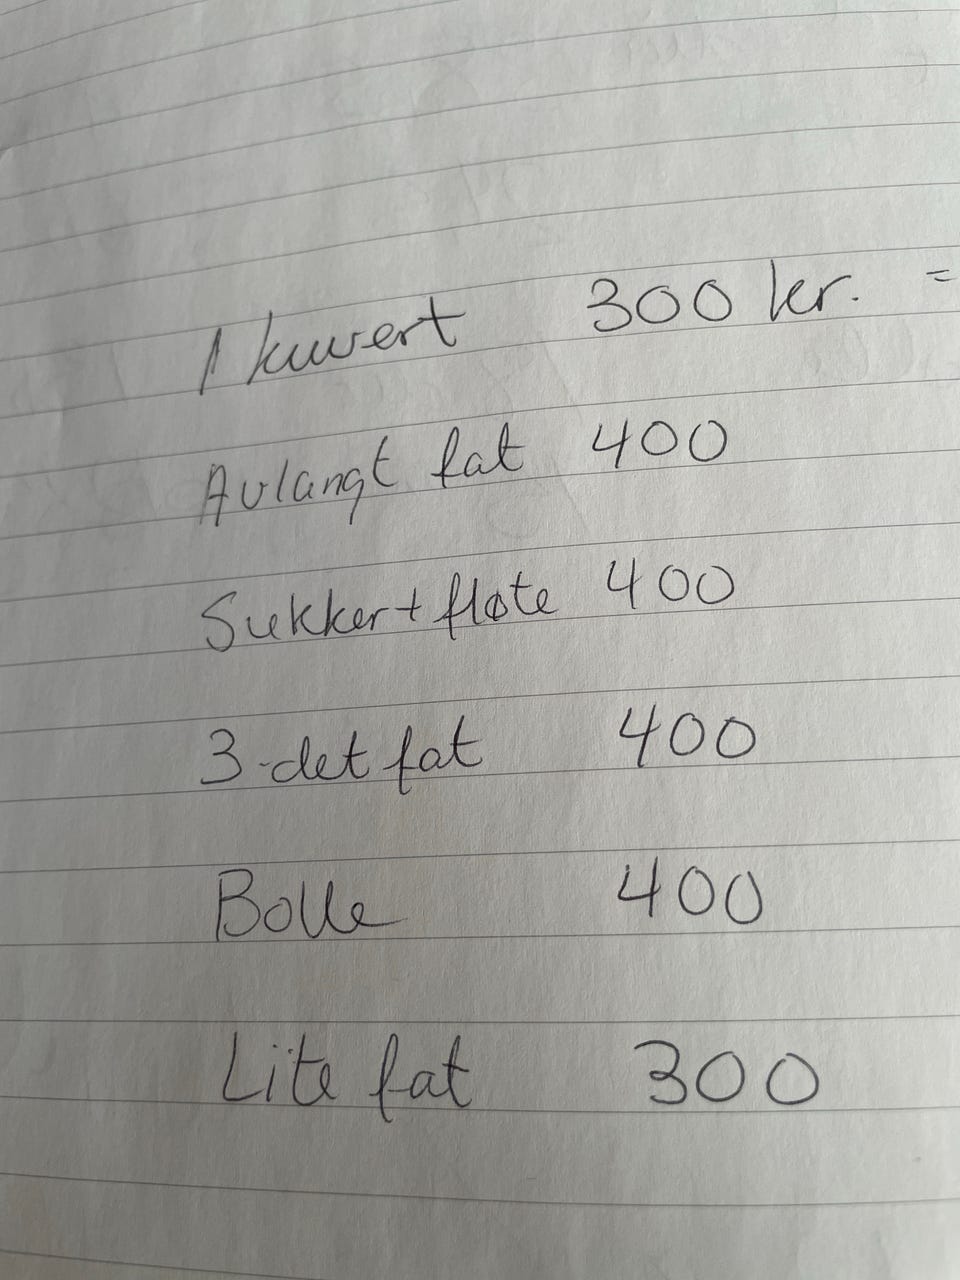 1 kuvert 300 kr. =
Avlangt fat 400
Sukker + fløte 400
3-det fat 400
Bolle 400
Lite fat 300